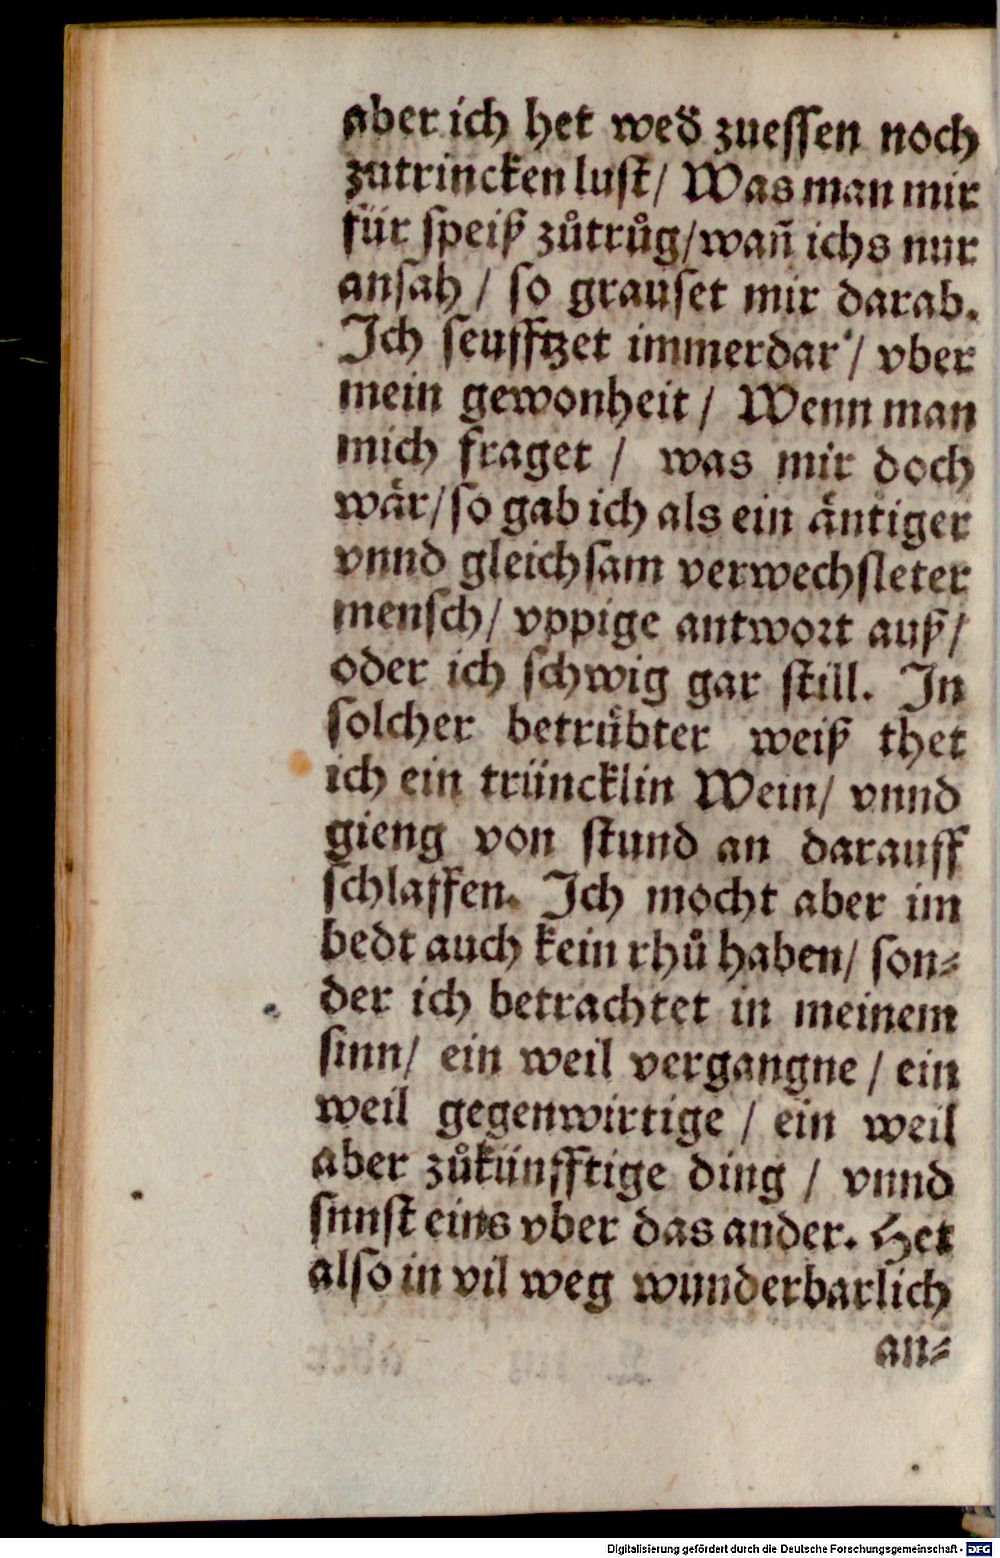 aber ich het wed̃ zuessen noch
zutrincken lust/ Was man mir
für speiß zůtrůg/wañ ichs nur
ansah / so grauset mir darab.
Ich seufftzet immerdar / vber
mein gewonheit / Wenn man
mich fraget / was mir doch
wår/so gab ich als ein äntiger
vnnd gleichsam verwechsleter
mensch/ vppige antwort auß/
oder ich schwig gar still. In
solcher betrübter weiß thet
ich ein trüncklin Wein/ vnnd
gieng von stund an darauff
schlaffen. Ich mocht aber im
bedt auch kein rhů haben/ son⸗
der ich betrachtet in meinem
sinn/ ein weil vergangne / ein
weil gegenwirtige / ein weil
aber zůkünfftige ding / vnnd
sunst eins vber das ander. Het
also in vil weg wunderbarlich
an⸗
Digitalisierung gefördert durch die Deutsche Forschungsgemeinschaft - DFG